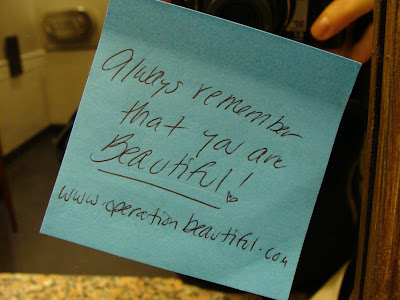 Always remember
that you are
Beautiful!
www.operationbeautiful.com